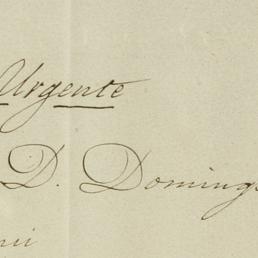 Urgente
D. Doming